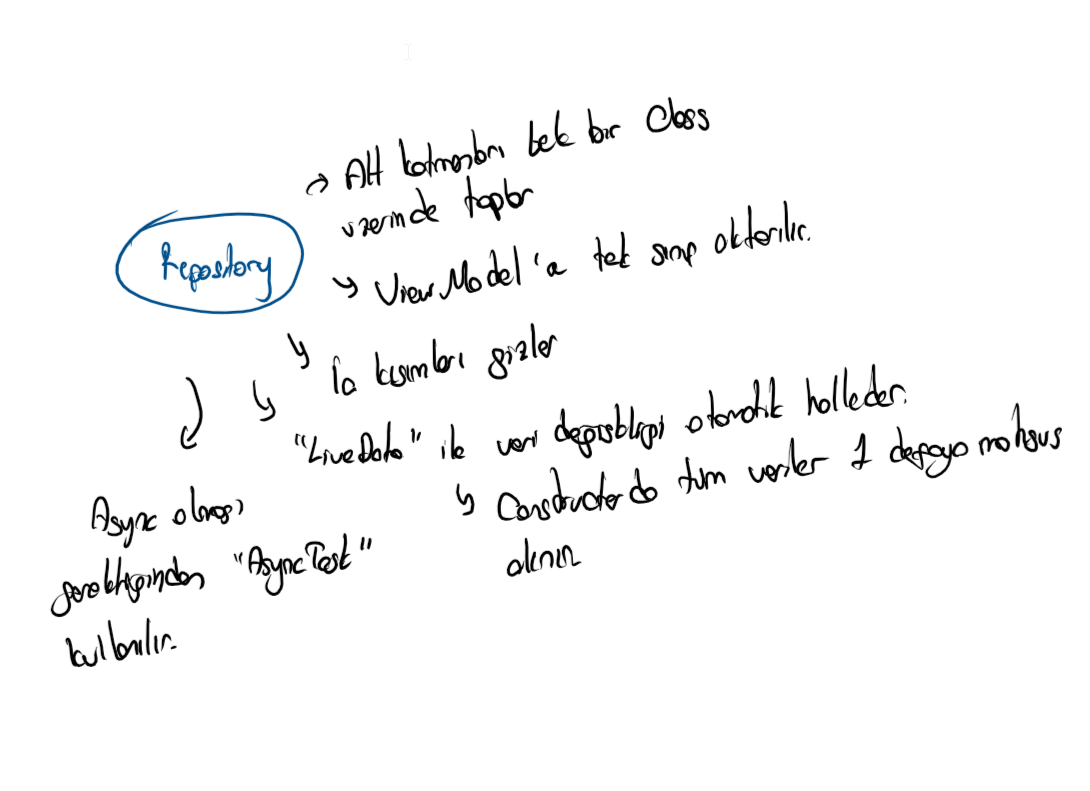 Repository
→ Alt katmanları tek bir Class
üzerinde toplar
↳ ViewModel'a tek sınıf aktarılır.
↳ İç kısımları gizler
↳ "LiveData" ile veri değişikliği otomatik halleder.
↳ Constructor da tüm veriler 1 defaya mahsus
alınır
Async olması
gerektiğinden "AsyncTask"
kullanılır.